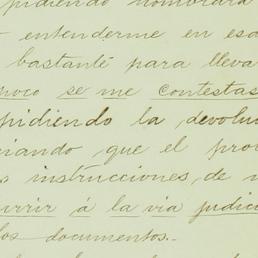 pidiendo nombrara
entenderme en esa
bastante para lleva
poco se me contestas
pidiendo la devolu
ciando que el pro
s instrucciones, de n
urrir á la via judici
los documentos.-